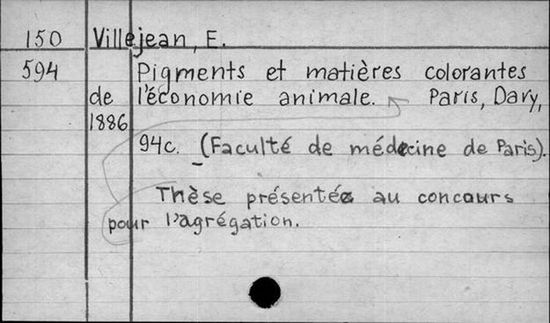 150 Villejean, E.
594 Pigments et matières colorantes
de l'économie animale. Paris, Davy,
1886
94c. (Faculté de médecine de Paris).
Thèse présentée au concours
pour l'agrégation.